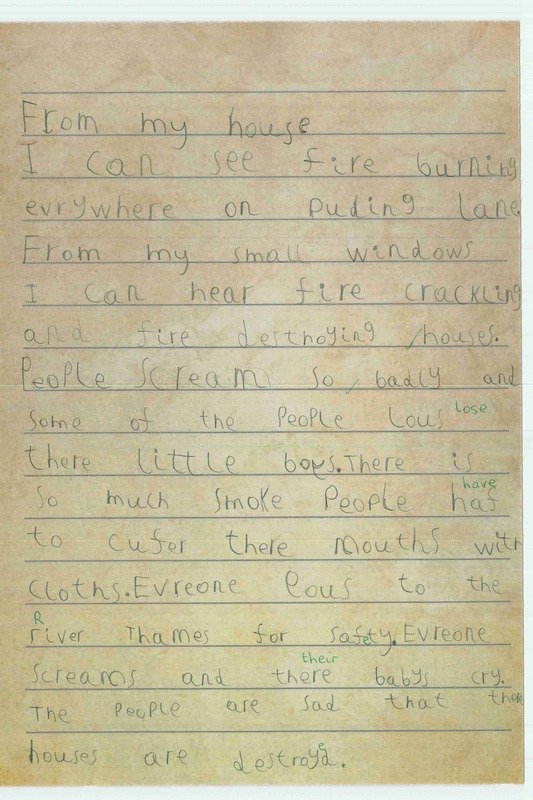 From my house
I can see fire burning
evrywhere on Puding lane
From my small windows
I can hear fire crackling
and fire destroying houses.
People scream so badly and
some of the People Lous lose
there little boys. There is
have
so much smoke People has
to cufer there mouths with
cloths. Evreone Lous to the
R
river Thames for safety. Evreone
their
screams and there babys cry.
The People are sad that
houses are destroyd.